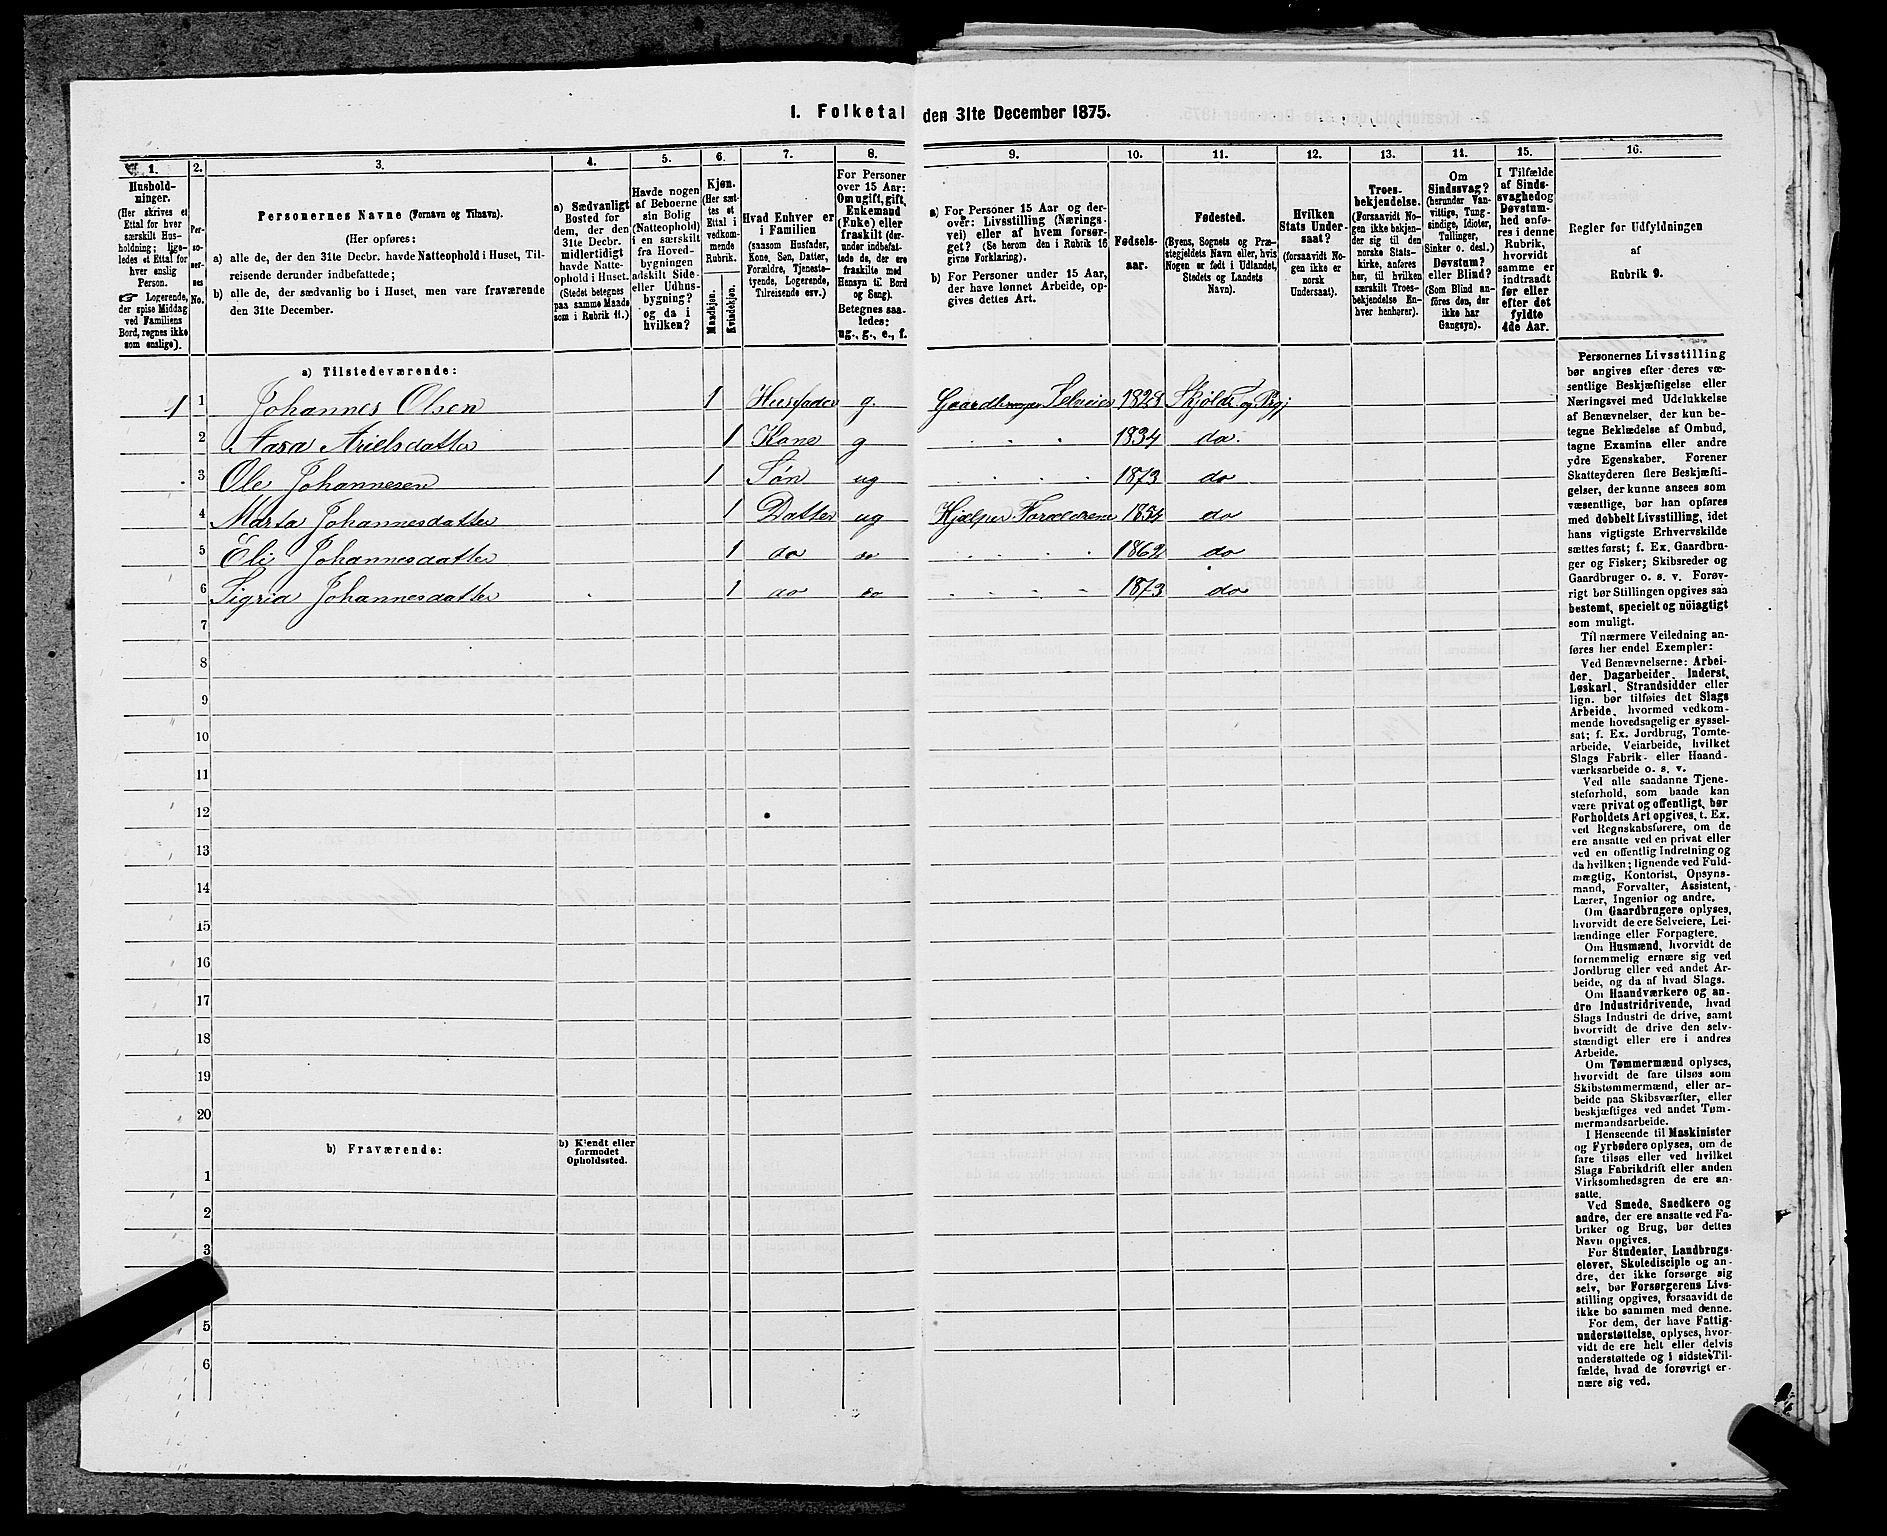 1. Folketal den 31te December 1875.
1. 2. 3. 4. 5. 6. 7. 8. 9. 10. 11. 12. 13. 14. 15. 16.
Hushold-
ninger.
(Her skrives et
Ettal for hver
særskilt Hus-
holdning; lige-
ledes et Ettal for
hver enslig
Person.
☞ Logerende,
der spise Middag
ved Familiens
Bord, regnes ikke
som enslige).
Per-
so-
ner-
nes
No.
Personernes Navne (Fornavn og Tilnavn).
(Her opføres:
a) alle de, der den 31te Decbr. havde Natteophold i Huset, Til-
reisende derunder indbefattede;
b) alle de, der sædvanlig bo i Huset, men vare fraværende
den 31te December.
a) Sædvanligt
Bosted for
dem, der den
31te Decbr.
midlertidigt
havde Natte-
ophold i Huset.
(Stedet betegnes
paa samme Maade
som i Rubrik 11.)
Havde nogen
af Beboerne
sin Bolig
(Natteophold)
i en særskilt
fra Hoved-
bygningen
adskilt Side-
eller Udhus-
bygning?
og da i
hvilken?
Kjøn.
(Her sæt-
tes et
Ettal i
vedkom-
mende
Rubrik.
Mandkjøn.
Kvindekjøn.
Hvad Enhver er
i Familien
(saasom Husfader,
Kone, Søn, Datter,
Forældre, Tjeneste-
tyende, Logerende,
Tilreisende osv.)
For Personer
over 15 Aar:
Om ugift, gift,
Enkemand
(Enke) eller
fraskilt (der-
under indbefat-
tede de, der ere
fraskilte med
Hensyn til Bord
og Seng).
Betegnes saa-
ledes:
ug., g., e., f.
a) For Personer 15 Aar og der-
over: Livsstilling (Nærings-
vei) eller af hvem forsør-
get? (Se herom den i Rubrik 16
givne Forklaring).
b) For Personer under 15 Aar,
der have lønnet Arbeide, op-
gives dettes Art.
Fødsels-
aar.
Fødested.
(Byens, Sognets og Præ-
stegjeldets Navn eller, hvis
Nogen er født i Udlandet,
Stedets og Landets
Navn).
Hvilken
Stats Under-
saat?
(forsaavidt No-
gen ikke er
norsk
Undersaat).
Troes-
bekjendelse.
(Forsaavidt No-
gen ikke bekjen-
der sig til den
norske Stats-
kirke, anføres
her, til hvilken
særskilt Troes-
bekjendelse En-
hver henhører).
Om
Sindssvag?
(herunder Van-
vittige, Tung-
sindige, Idioter,
Tullinger,
Sinker o. desl.)
Døvstum?
eller Blind?
(Som Blind an-
føres den, der
ikke har
Gangsyn).
I Tilfælde
af Sinds-
svaghed og
Døvstum-
hed anfø-
res i denne
Rubrik,
hvorvidt
samme er
indtraadt
før eller
efter det
fyldte
4de Aar.
Regler for Udfyldningen
af
Rubrik 9.
a) Tilstedeværende:
1 1 Johannes Olsen 1 Husfader g. Gaardbruger Selveier 1828 Skjold S. og Prgj
2 Aasa Arielsdatter 1 Kone g 1834 do.
3 Ole Johannesen 1 Søn ug 1873 do
4 Marta Johannesdatter 1 Datter ug Hjælper Forældrene 1854 do
5 Eli Johannesdatter 1 do do 1862 do
6 Sigrid Johannesdatter 1 do do 1873 do
7
8
9
10
11
12
13
14
15
16
17
18
19
20
b) Fraværende:
b) Kjendt eller
formodet
Opholdssted.
1
2
3
5
6
Personernes Livsstilling
bør angives efter deres væ-
sentlige Beskjæftigelse eller
Næringsvei med Udelukkelse
af Benævnelser, der kun be-
tegne Beklædelse af Ombud,
tagne Examina eller andre
ydre Egenskaber. Forener
Skatteyderen flere Beskjæfti-
gelser, der kunne ansees som
væsentlige, bør han opføres
med dobbelt Livsstilling, idet
hans vigtigste Erhvervskilde
sættes først; f. Ex. Gaardbru-
ger og Fisker; Skibsreder og
Gaardbruger o. s. v. Forøv-
rigt bør Stillingen opgives saa
bestemt, specielt og nöiagtigt
som muligt.
Til nærmere Veiledning an-
føres her endel Exempler:
Ved Benævnelserne: Arbei-
der, Dagarbeider, Inderst,
Løskarl, Strandsidder eller
lign. bør tilføies det Slags
Arbeide, hvormed vedkom-
mende hovedsagelig er syssel-
sat; f. Ex. Jordbrug, Tomte-
arbeide, Veiarbeide, hvilket
Slags Fabrik- eller Haand-
værksarbeide o. s. v.
Ved alle saadanne Tjene-
steforhold, som baade kan
være privat og offentligt, bør
Forholdets Art opgives, t. Ex.
ved Regnskabsførere, om de
ere ansatte ved en privat eller
ved en offentlig Indretning og
da hvilken; lignende ved Fuld-
mægtig, Kontorist, Opsyns-
mand, Forvalter, Assistent,
Lærer, Ingeniør og andre.
Om Gaardbrugere oplyses,
hvorvidt de ere Selveiere, Lei-
lændinge eller Forpagtere.
Om Husmænd, hvorvidt de
fornemmelig ernære sig ved
Jordbrug eller ved andet Ar-
beide, og da af hvad Slags.
Om Haandværkere og an-
dre Industridrivende, hvad
Slags Industri de drive, samt
hvorvidt de drive den selv-
stændigt eller ere i andres
Arbeide.
Om Tømmermænd oplyses,
hvorvidt de fare tilsøs som
Skibstømmermænd, eller ar-
beide paa Skibsværfter, eller
beskjæftiges ved andet Tøm-
mermandsarbeide.
I Henseende til Maskinister
og Fyrbødere oplyses, om de
fare tilsøs eller ved hvilket
Slags Fabrikdrift eller anden
Virksomhedsgren de ere an-
satte.
Ved Smede, Snedkere og
andre, der ere ansatte ved Fa-
briker og Brug, bør dettes
Navn opgives.
For Studenter, Landbrugs-
elever, Skoledisciple og an-
dre, der ikke forsørge sig
selv, bør Forsørgerens Livs-
stilling opgives, forsaavidt de
ikke bo sammen med denne.
For dem, der have Fattig-
understøttelse, oplyses, hvor-
vidt de ere helt eller delvis
understøttede og i sidste Til-
fælde, hvad de forøvrigt er-
nære sig ved.